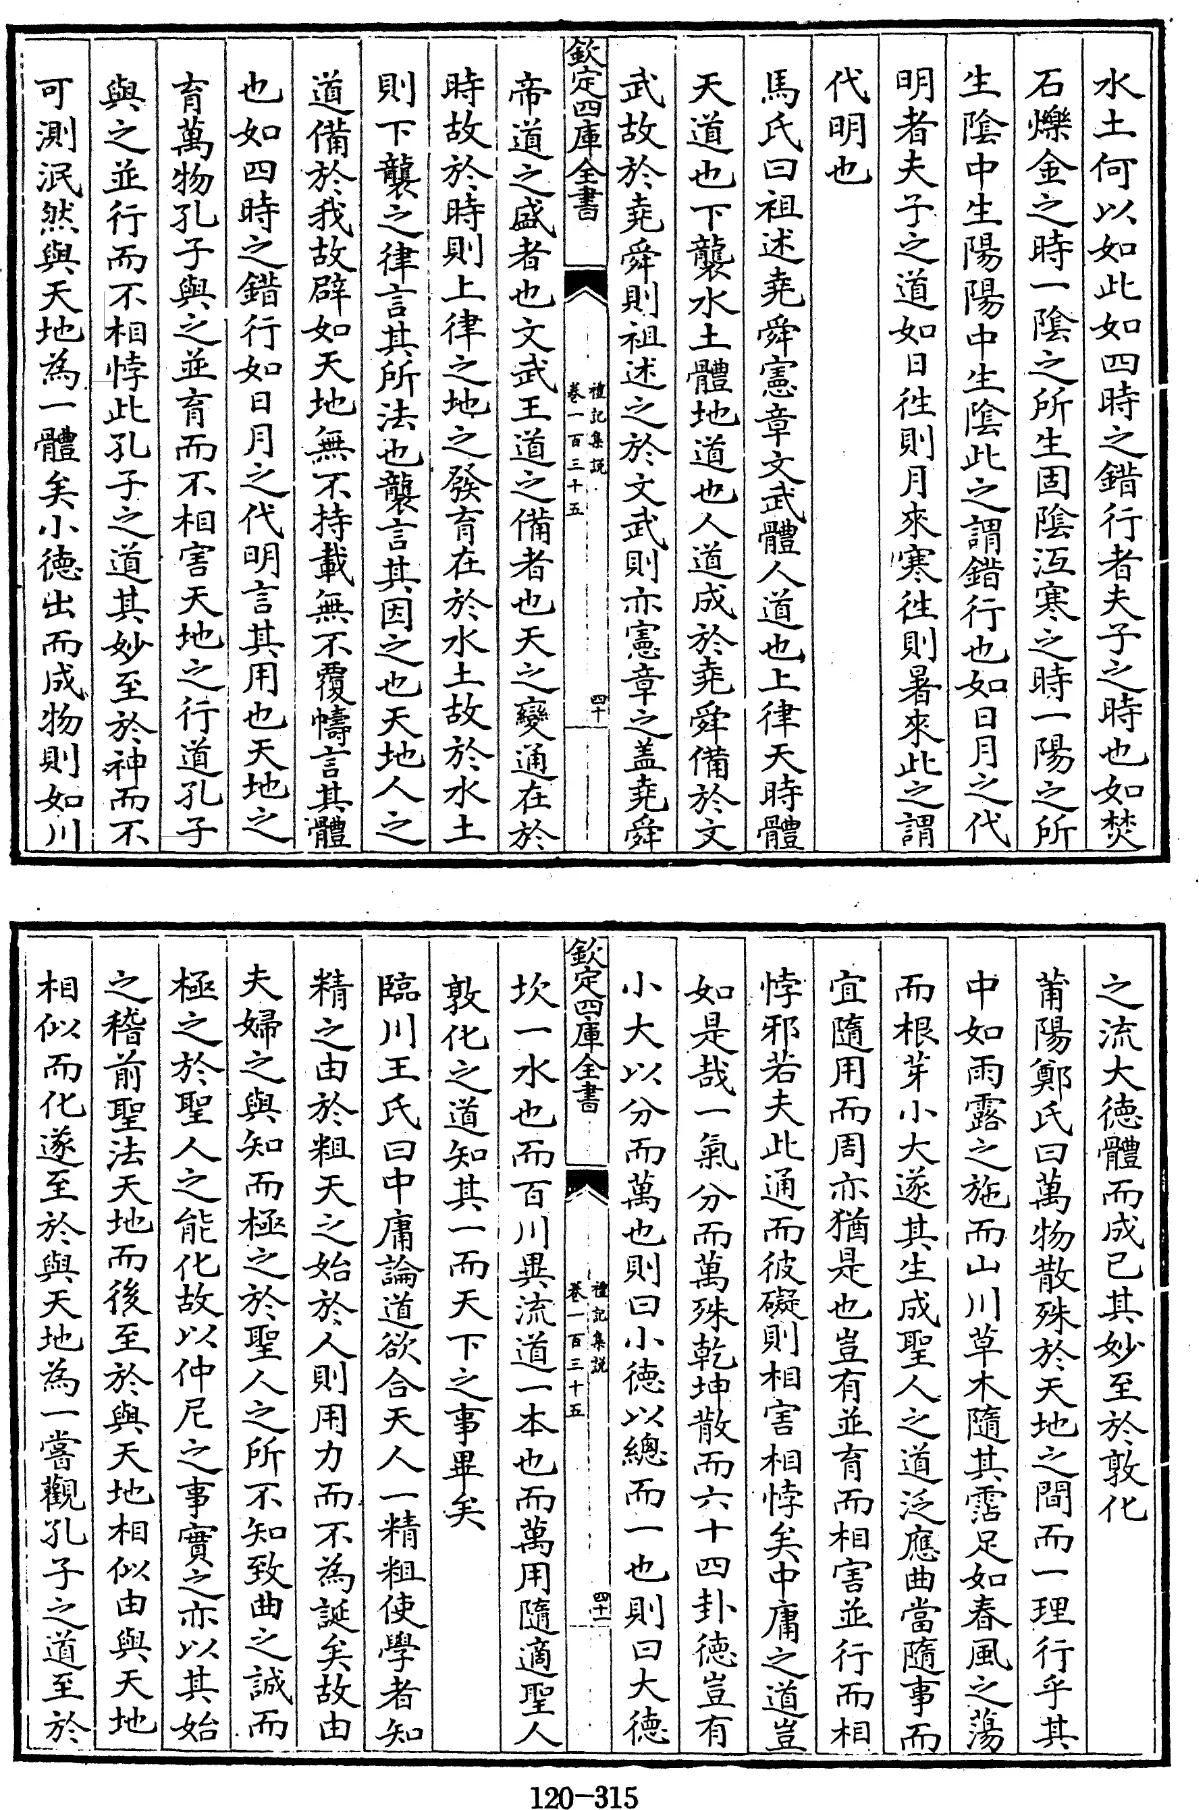 水土何以如此如四時之錯行者夫子之時也如焚
石爍金之時一陰之所生固陰沍寒之時一陽之所
生陰中生陽陽中生陰此之謂錯行也如日月之代
明者夫子之道如日徃則月來寒徃則暑來此之謂
代明也
馬氏曰祖述堯舜憲章文武體人道也上律天時體
天道也下襲水土體地道也人道成於堯舜備於文
武故於堯舜則祖述之於文武則亦憲章之盖堯舜
欽定四庫全書
禮記集説
卷一百三十五
四十
帝道之盛者也文武王道之備者也天之變通在於
時故於時則上律之地之發育在於水土故於水土
則下襲之律言其所法也襲言其因之也天地人之
道備於我故辟如天地無不持載無不覆幬言其體
也如四時之錯行如日月之代明言其用也天地之
育萬物孔子與之並育而不相害天地之行道孔子
與之並行而不相悖此孔子之道其妙至於神而不
可測泯然與天地為一體矣小德出而成物則如川
之流大德體而成已其妙至於敦化
莆陽鄭氏曰萬物散殊於天地之間而一理行乎其
中如雨露之施而山川草木隨其霑足如春風之蕩
而根芽小大遂其生成聖人之道泛應曲當隨事而
宜隨用而周亦猶是也豈有並育而相害並行而相
悖邪若夫此通而彼礙則相害相悖矣中庸之道豈
如是哉一氣分而萬殊乾坤散而六十四卦德豈有
小大以分而萬也則曰小德以總而一也則曰大德
欽定四庫全書
禮記集説
卷一百三十五
四十一
坎一水也而百川異流道一本也而萬用隨適聖人
敦化之道知其一而天下之事畢矣
臨川王氏曰中庸論道欲合天人一精粗使學者知
精之由於粗天之始於人則用力而不為誕矣故由
夫婦之與知而極之於聖人之所不知致曲之誠而
極之於聖人之能化故以仲尼之事實之亦以其始
之稽前聖法天地而後至於與天地相似由與天地
相似而化遂至於與天地為一嘗觀孔子之道至於
120-315